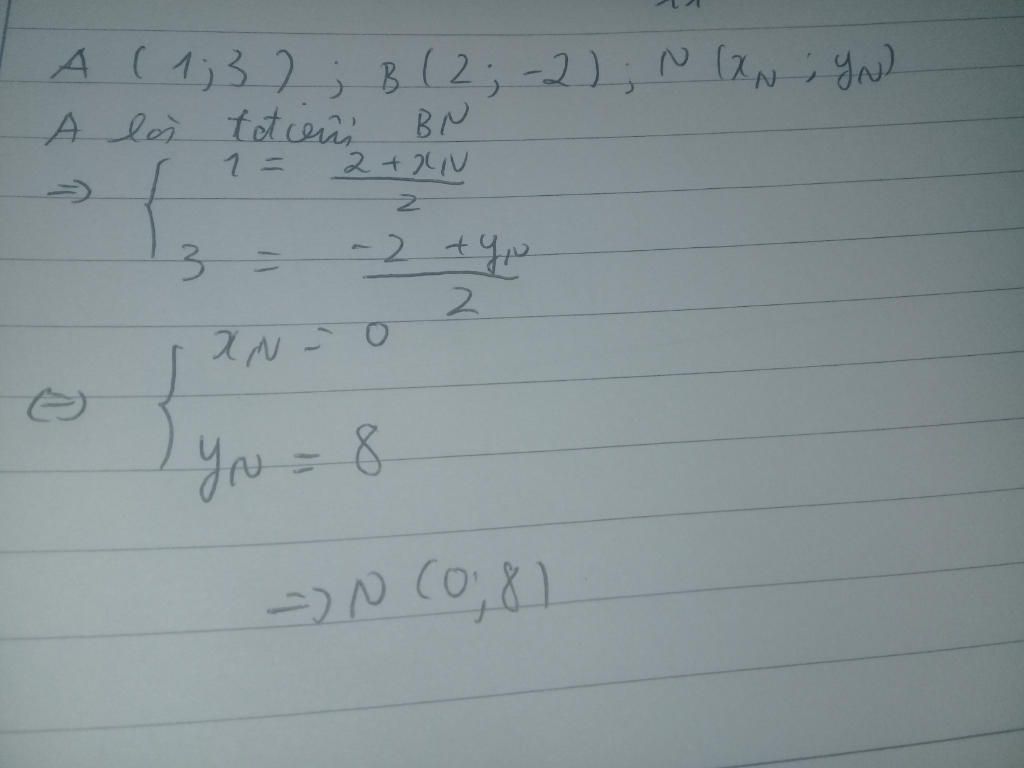 A (1;3) ; B(2; -2) ; N (xN ; yN)
A là BN
=> { 1 = (2 + xN)/2
3 = (-2 + yN)/2
<=> { xN = 0
yN = 8
=> N (0;8)